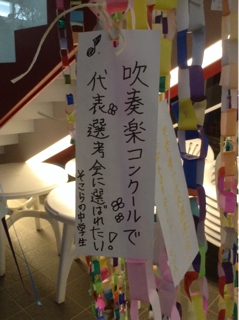 吹奏楽コンクールで
代表選考会に選ばれたい!
そこらの中学生